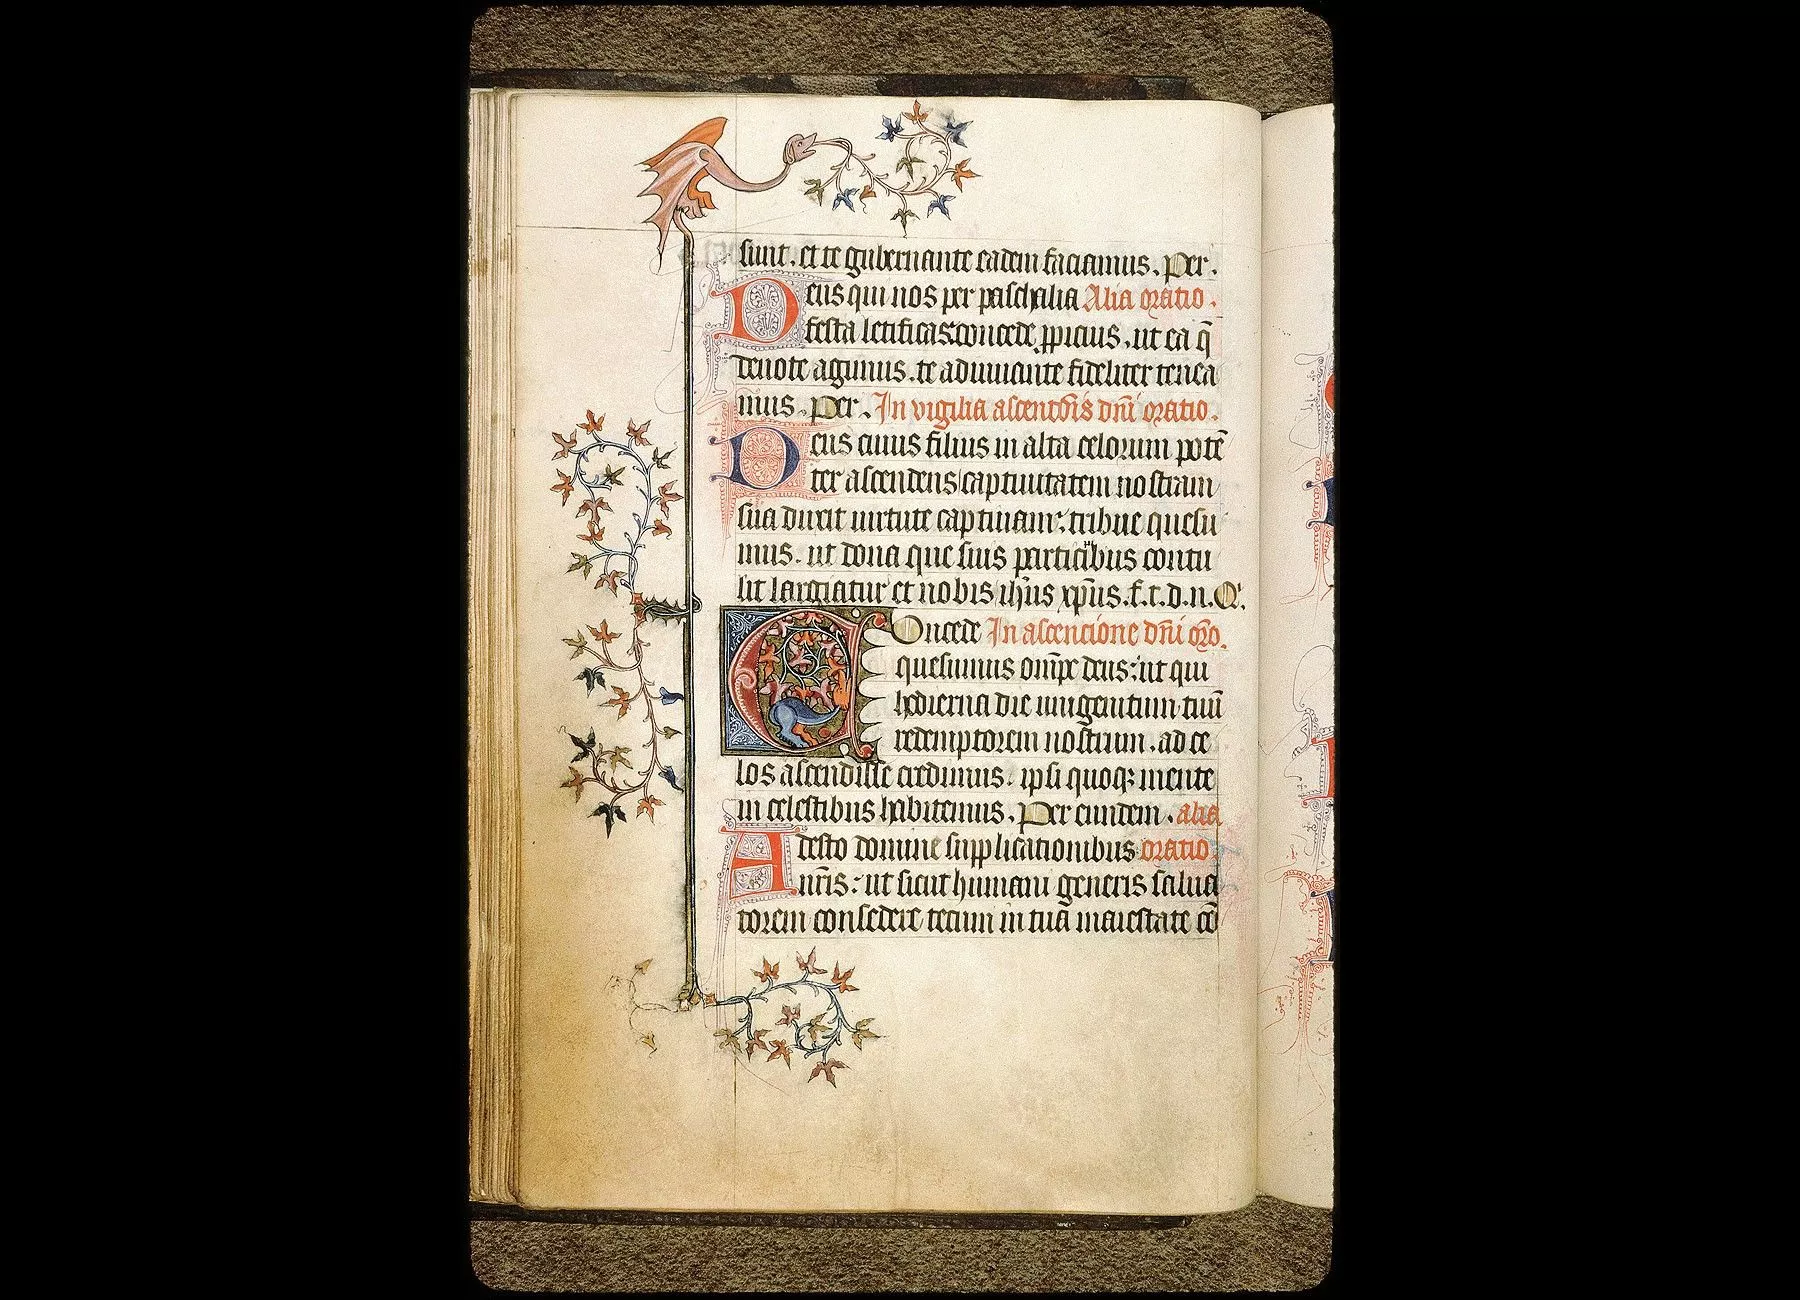 sunt. et te gubernante eadem faciamus. Per.
Deus qui nos per paschalia Alia oratio.
festa letificas concede ꝓpicius. ut ea q̄
deuote agimus. te adiuuante fideliter tenea
mus. Per. In vigilia ascenc̄ōis dn̄i oratio.
Deus cuius filius in alta celorum potē
ter ascendens captiuitatem nostram
sua duxit uirtute captiuam: tribue quesu
mus. ut dona que suis participibus contu
lit largiatur et nobis ih̄us xp̄us. f. t. d. n. Q'.
Concede In ascencione dn̄i or̄o.
quesumus om̄p̄c deus: ut qui
hodierna die unigenitum tuū
redemptorem nostrum. ad ce
los ascendisse credimus. ipsi quoq; mente
in celestibus habitemus. Per eundem. alia
Adesto domine supplicationibus oratio
nr̄is: ut sicut humani generis salua
torem consedere tecum in tua maiestate cō